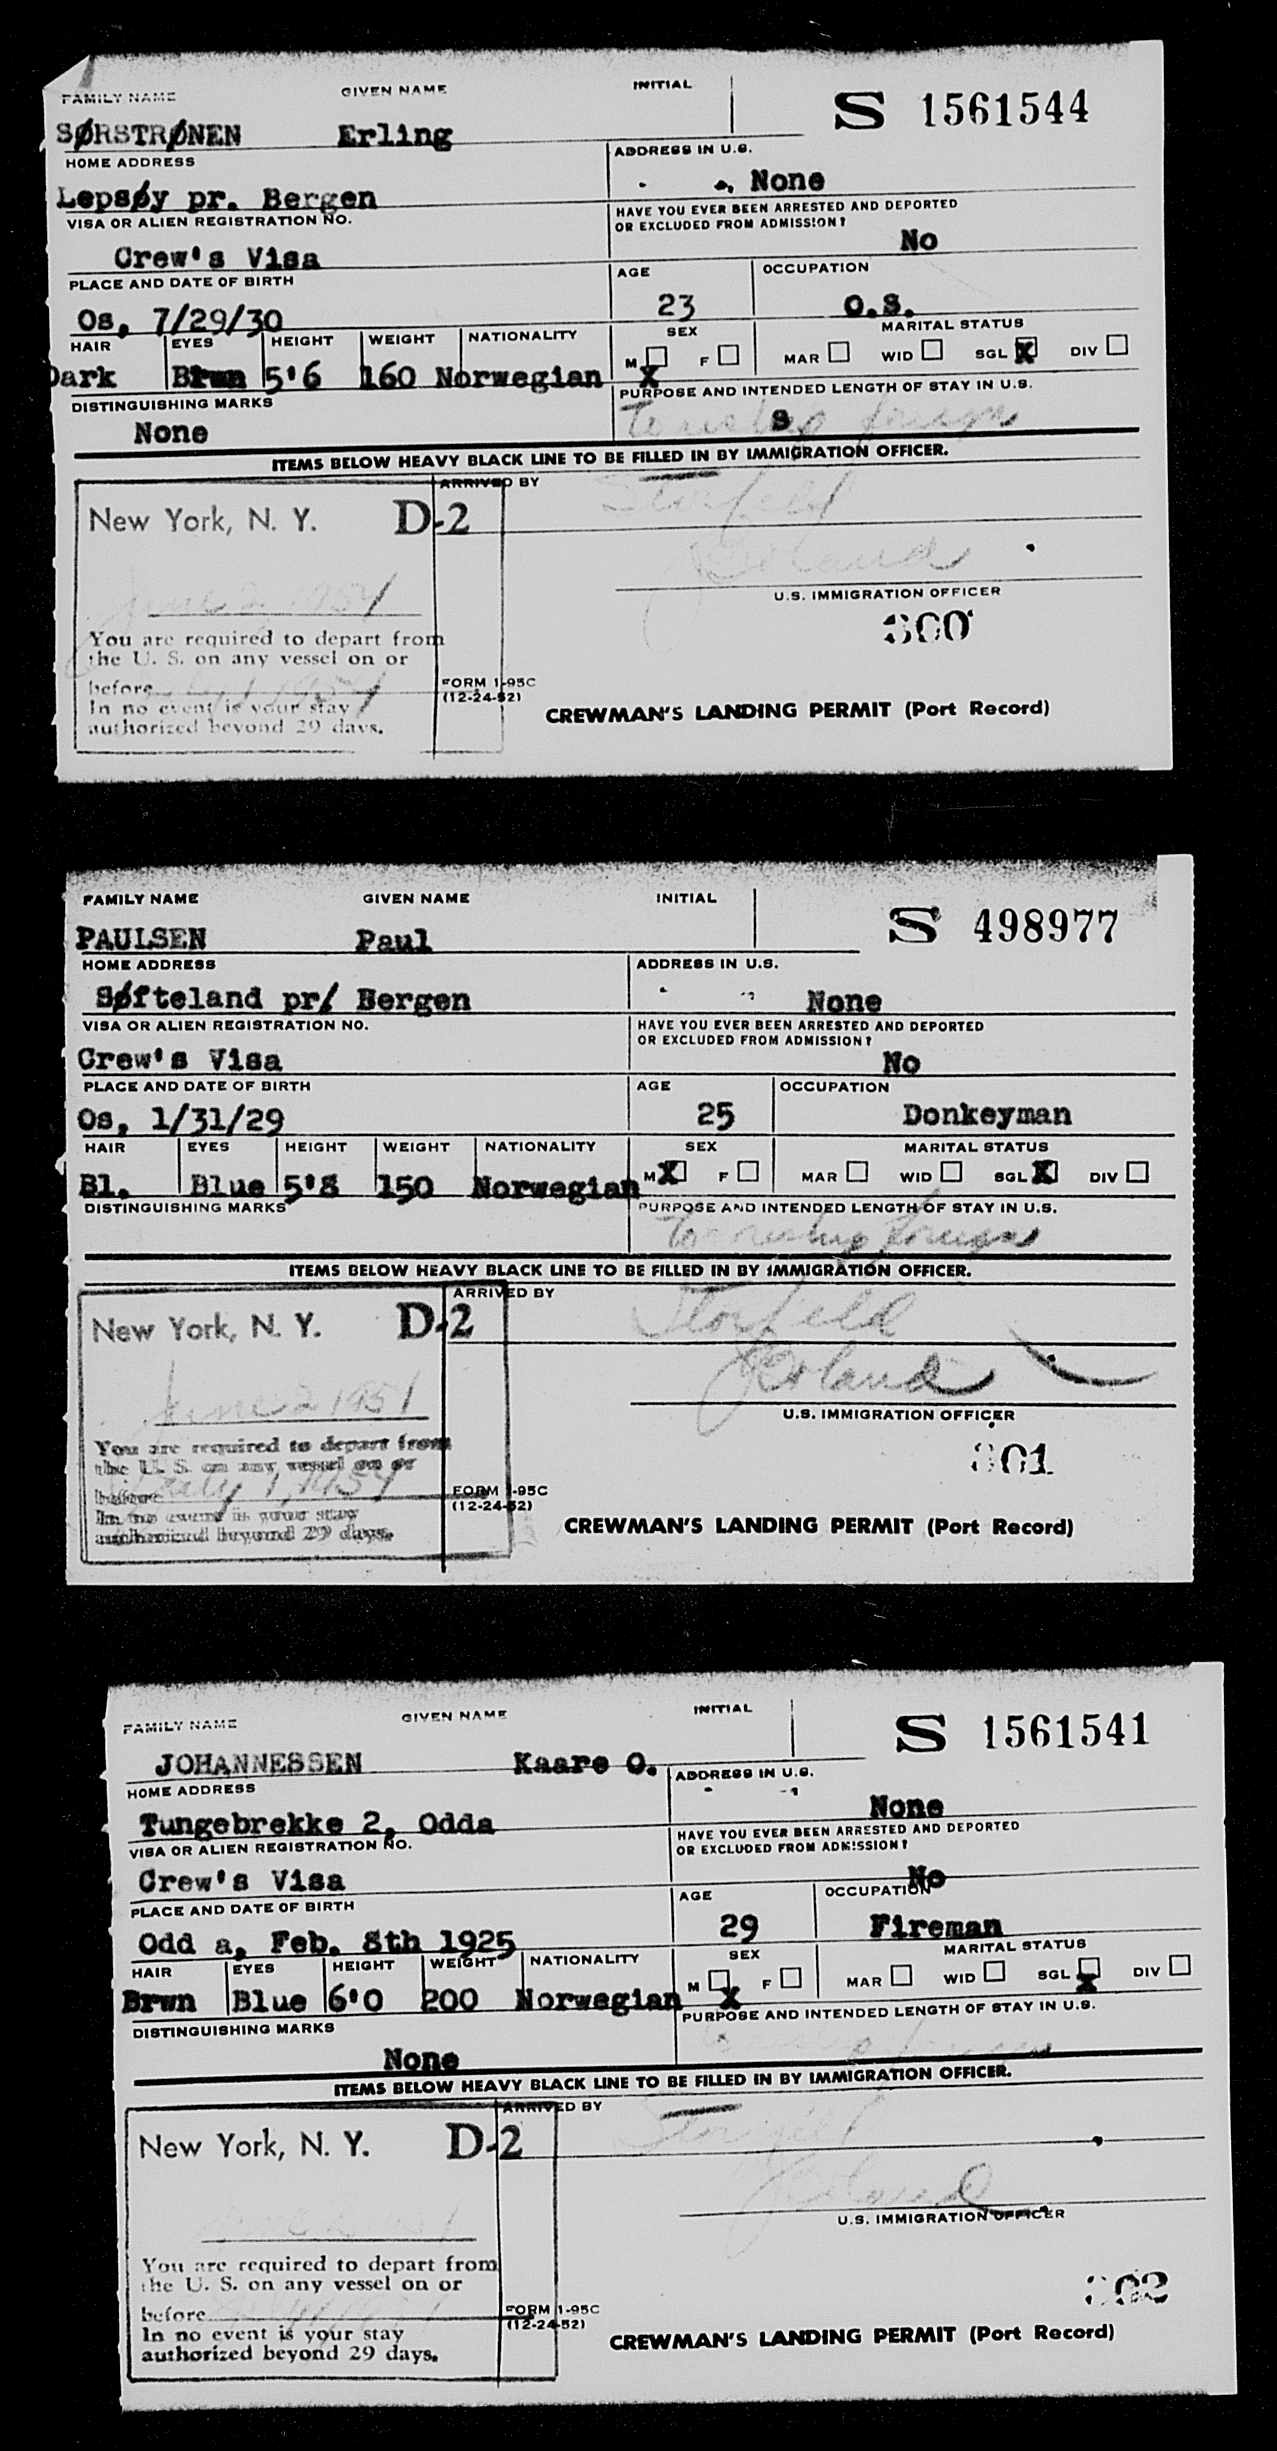 FAMILY NAME GIVEN NAME INITIAL
S 1561544
SØRSTRØNEN Erling
HOME ADDRESS ADDRESS IN U.S.
Lepsøy pr. Bergen None
VISA OR ALIEN REGISTRATION NO. HAVE YOU EVER BEEN ARRESTED AND DEPORTED
OR EXCLUDED FROM ADMISSION?
Crew's Visa No
PLACE AND DATE OF BIRTH AGE OCCUPATION
Os, 7/29/30 23 O.S.
HAIR EYES HEIGHT WEIGHT NATIONALITY SEX MARITAL STATUS
M F MAR WID SGL X DIV
Dark Brwn 5'6 160 Norwegian X
DISTINGUISHING MARKS PURPOSE AND INTENDED LENGTH OF STAY IN U.S.
None s
ITEMS BELOW HEAVY BLACK LINE TO BE FILLED IN BY IMMIGRATION OFFICER.
ARRIVED BY Storfeld
New York, N. Y. D-2
June 2 1954
U.S. IMMIGRATION OFFICER
300
You are required to depart from
the U. S. on any vessel on or
before
In no event is your stay
authorized beyond 29 days.
FORM I-95C
(12-24-52)
CREWMAN'S LANDING PERMIT (Port Record)
FAMILY NAME GIVEN NAME INITIAL
S 498977
PAULSEN Paul
HOME ADDRESS ADDRESS IN U.S.
Søfteland pr/ Bergen None
VISA OR ALIEN REGISTRATION NO. HAVE YOU EVER BEEN ARRESTED AND DEPORTED
OR EXCLUDED FROM ADMISSION?
Crew's Visa No
PLACE AND DATE OF BIRTH AGE OCCUPATION
Os, 1/31/29 25 Donkeyman
HAIR EYES HEIGHT WEIGHT NATIONALITY SEX MARITAL STATUS
M X F MAR WID SGL X DIV
Bl. Blue 5'8 150 Norwegian
DISTINGUISHING MARKS PURPOSE AND INTENDED LENGTH OF STAY IN U.S.
ITEMS BELOW HEAVY BLACK LINE TO BE FILLED IN BY IMMIGRATION OFFICER.
ARRIVED BY Storfeld
New York, N. Y. D-2
June 2 1954
U.S. IMMIGRATION OFFICER
301
You are required to depart from
the U. S. on any vessel on or
before July 1, 1954
In no event is your stay
authorized beyond 29 days.
FORM I-95C
(12-24-52)
CREWMAN'S LANDING PERMIT (Port Record)
FAMILY NAME GIVEN NAME INITIAL
S 1561541
JOHANNESSEN Kaare O.
HOME ADDRESS ADDRESS IN U.S.
Tungebrekke 2, Odda None
VISA OR ALIEN REGISTRATION NO. HAVE YOU EVER BEEN ARRESTED AND DEPORTED
OR EXCLUDED FROM ADMISSION?
Crew's Visa No
PLACE AND DATE OF BIRTH AGE OCCUPATION
Odd a, Feb. 8th 1925 29 Fireman
HAIR EYES HEIGHT WEIGHT NATIONALITY SEX MARITAL STATUS
M F MAR WID SGL X DIV
Brwn Blue 6'0 200 Norwegian X
DISTINGUISHING MARKS PURPOSE AND INTENDED LENGTH OF STAY IN U.S.
None
ITEMS BELOW HEAVY BLACK LINE TO BE FILLED IN BY IMMIGRATION OFFICER.
ARRIVED BY
New York, N. Y. D-2
U.S. IMMIGRATION OFFICER
302
You are required to depart from
the U. S. on any vessel on or
before
In no event is your stay
authorized beyond 29 days.
FORM I-95C
(12-24-52)
CREWMAN'S LANDING PERMIT (Port Record)